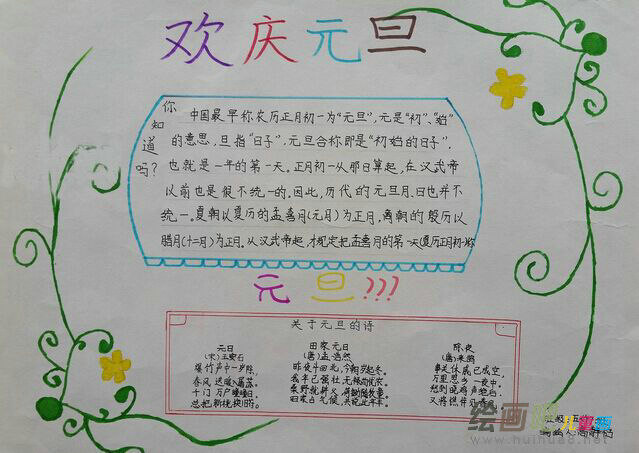 欢庆元旦
你知道吗?
中国最早称农历正月初一为“元旦”,元是“初”、“始”
的意思,旦指“日子”,元旦合称即是“初始的日子”,
也就是一年的第一天。正月初一从那日算起,在汉武帝
以前也是很不统一的。因此,历代的元旦月、日也并不
统一。夏朝以夏历的孟喜月(元月)为正月,商朝的殷历以
腊月(十二月)为正月。从汉武帝起,才规定把孟喜月的第一天(夏历正月初一)称
元旦???
关于元旦的诗
元日
(宋)王安石
爆竹声中一岁除,
春风送暖入屠苏。
千门万户曈曈日,
总把新桃换旧符。
田家元日
(唐)孟浩然
昨夜斗回北,今朝岁起东。
我年已强壮,无禄尚忧农。
田家占气候,共说此年丰。
除夜
(唐)来鹄
事关休戚已成空,
万里思乡一夜中。
愁到晓鸡声绝后,
又将憔悴见春风。
绘画
儿童画
www.huihua8.net